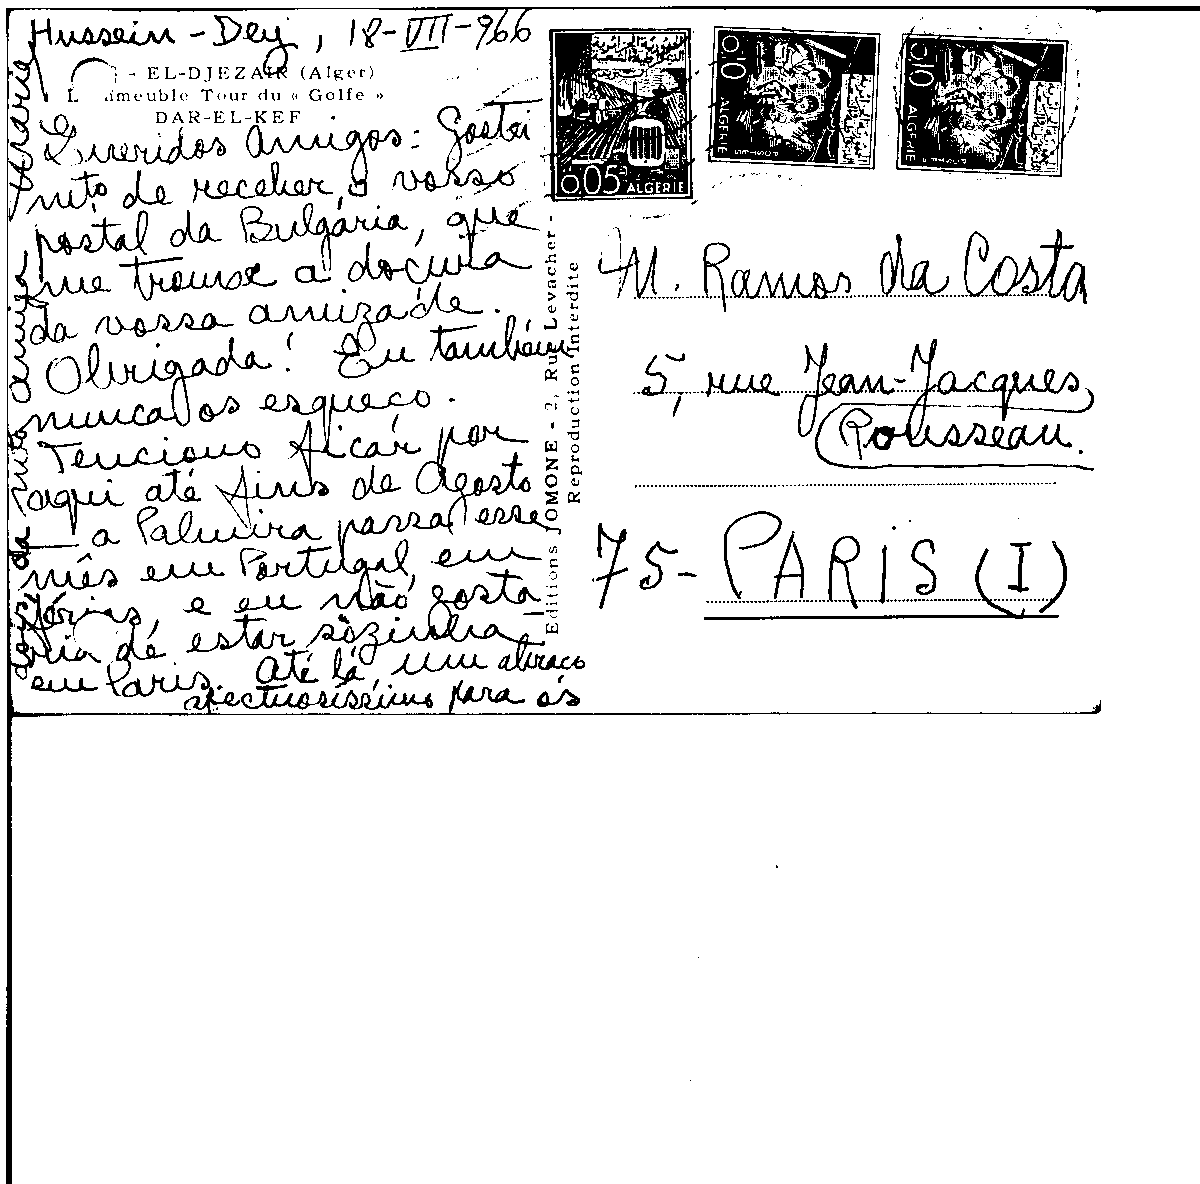 Hussein-Dey, 18-VII-966
- EL-DJEZAIR (Alger)
L' immeuble Tour du « Golfe »
DAR-EL-KEF
Queridos Amigos: Gostei
mto de receber o vosso
postal da Bulgária, que
me trouxe a doçura
da vossa amizade.
Obrigada! Eu também
nunca os esqueço.
Tenciono ficar por
aqui até fins de Agosto
— a Palmira passa esse
mês em Portugal, em
férias, e eu não gosta-
ria de estar sòzinha
em Paris. Até lá, um abraço
afectuosíssimo para os
dois, da muito amiga, Maria
Editions JOMONE - 2, Rue Levacher -
Reproduction Interdite
0.05 ALGERIE
0.10 ALGERIE
0.10 ALGERIE
M. Ramos da Costa
5, rue Jean-Jacques
Rousseau.
75- PARIS (I)